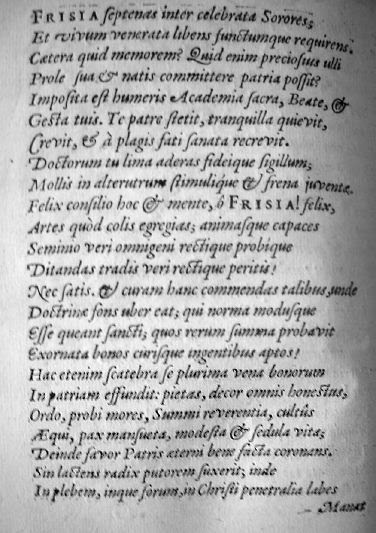 FRISIA septenas inter celebrata Sorores;
Et vivum venerata libens functumque requirens.
Cætera quid memorem? Quid enim preciosius ulli
Prole sua & natis committere patria possit?
Imposita est humeris Academia sacra, Beate, &
Gesta tuis. Te patre stetit, tranquilla quievit,
Crevit, & à plagis fati sanata recrevit.
Doctorum tu lima aderas fideique sigillum;
Mollis in alterutrum stimulique & frena juventæ.
Felix consilio hoc & mente, ô FRISIA! felix,
Artes quòd colis egregias; animasque capaces
Seminio veri omnigeni rectique probique
Ditandas tradis veri rectique peritis!
Nec satis. & curam hanc commendas talibus, unde
Doctrinæ fons uber eat; qui norma modusque
Esse queant sancti; quos rerum summa probavit
Exornata bonos curisque ingentibus aptos!
Hac etenim scatebra se plurima vena bonorum
In patriam effundit: pietas, decor omnis honestus,
Ordo, probi mores, Summi reverentia, cultus
Æqui, pax mansueta, modesta & sedula vita;
Deinde favor Patris æterni bene facta coronans.
Sin lactens radix putorem suxerit; inde
In plebem, inque forum, in Christi penetralia labes
Manat